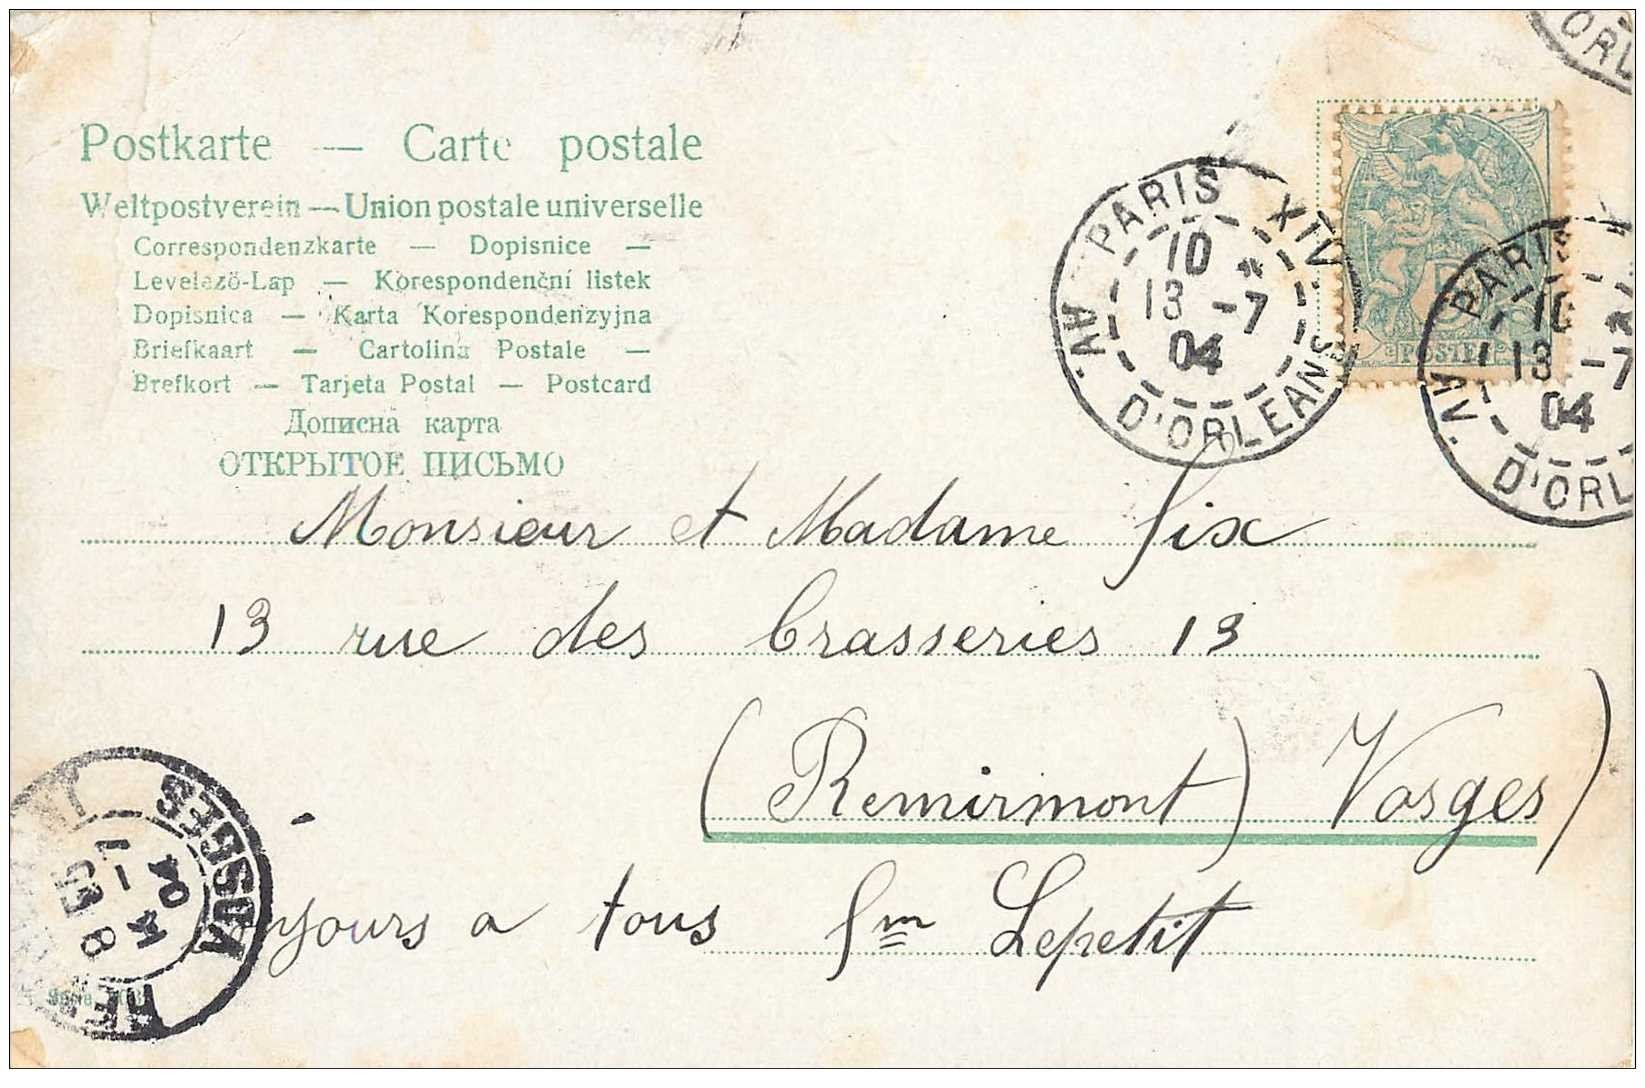 Postkarte — Carte postale
Weltpostverein — Union postale universelle
Correspondenzkarte — Dopisnice —
Levelező-Lap — Korespondenční listek
Dopisnica — Karta Korespondenzyjna
Briefkaart — Cartolina Postale —
Brefkort — Tarjeta Postal — Postcard
Дописна карта
ОТКРЫТОЕ ПИСЬМО
PARIS XIV
10 *
13 -7
04
AV. D'ORLEANS
PARIS
10 *
13 -7
04
AV. D'ORL
ORL
POSTES
Monsieur et Madame Six
13 rue des brasseries 13
(Remirmont) Vosges)
a tous Lepetit
VOSGES
8 15
-7
04